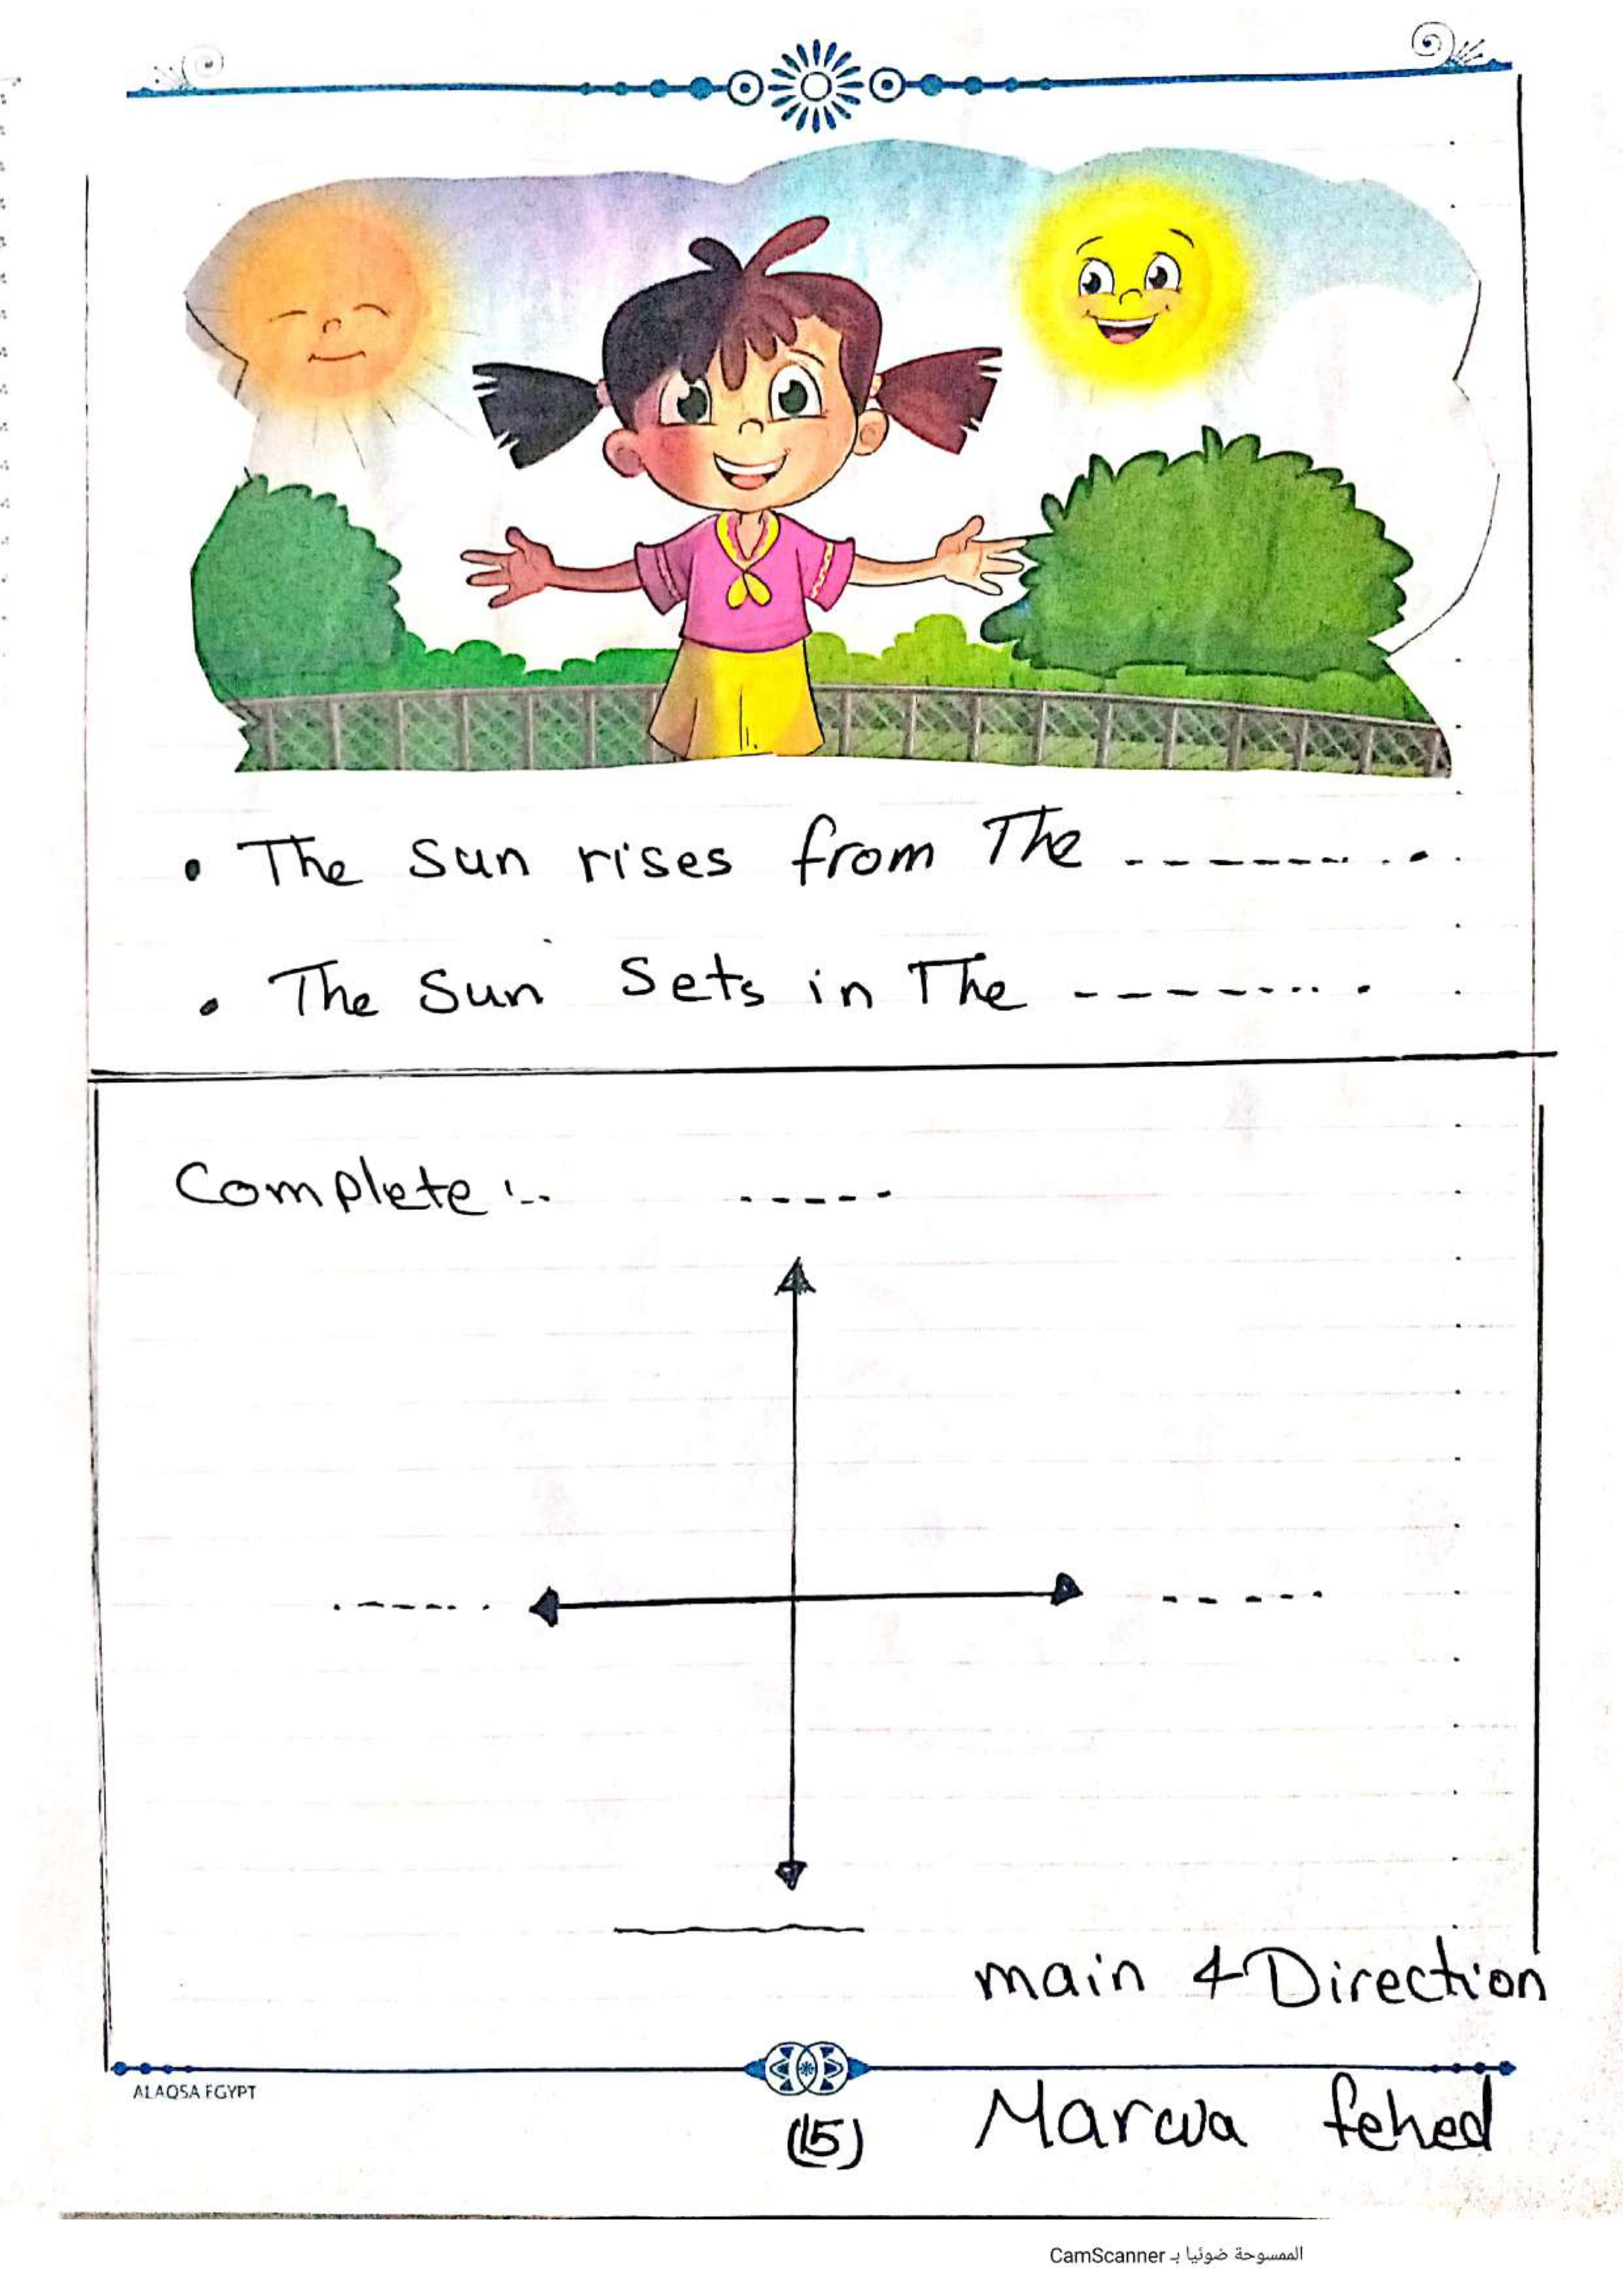 • The Sun rises from The --------.
• The Sun Sets in The --------.
Complete :- -----
----- -----
main 4 Direction
ALAQSA EGYPT
(15) Marwa fehed
الممسوحة ضوئيا بـ CamScanner